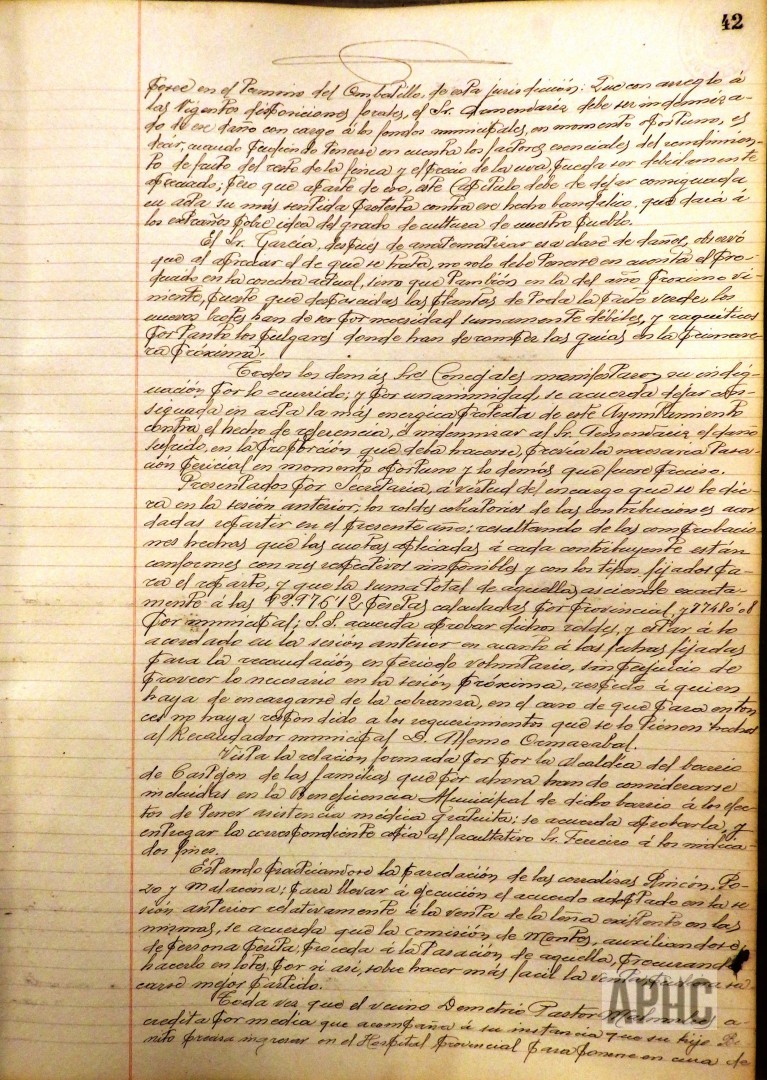 42
posee en el término del Ombatillo, de esta jurisdicción: Que con arreglo á
las vigentes disposiciones forales, el Sr. Armendariz debe ser indemniza-
do de ese daño con cargo á los fondos municipales, en momento oportuno, es
decir, cuando pudiendo tenerse en cuenta los factores esenciales del rendimien-
to de fruto del resto de la finca y el precio de la uva, pueda ser debidamente
apreciado; pero que aparte de eso, este Capítulo debe de dejar consignada
en acta su más sentida protesta contra ese hecho bandálico, que dará á
los extraños pobre idea del grado de cultura de nuestro pueblo.
El Sr. García, después de anatematizar esa clase de daños, observó
que al apreciar el de que se trata, no solo debe tenerse en cuenta el pro-
ducido en la cosecha actual, sino que también en la del año próximo vi-
niente, puesto que desposeidas las plantas de toda la fruta verde, los
nuevos brotes han de ser por necesidad sumamente débiles, y raquíticos
por tanto los pulgares donde han de romper las guias en la primave-
ra próxima.
Todos los demás Sres Concejales manifestaron su indig-
nación por lo ocurrido; y por unanimidad, se acuerda dejar con-
signada en acta la más energica protexta de este Ayuntamiento
contra el hecho de referencia, é indemnizar al Sr. Armendariz el daño
sufrido, en la proporción que deba hacerse, previa la necesaria tasa-
ción pericial en momento oportuno y lo demás que fuere preciso.
Presentados por Secretaría, a virtud del encargo que se le die-
ra en la sesión anterior, los roldes cobratorios de las contribuciones acor-
dadas repartir en el presente año; resultando de las comprobacio-
nes hechas que las cuotas aplicadas á cada contribuyente están
conformes con sus respectivos imponibles y con los tipos fijados pa-
ra el reparto, y que la suma total de aquellas asciende exacta-
mente á las 92.976'12 pesetas calculadas por provincial, y 87480'08
por municipal; S.S. acuerda aprobar dichos roldes, y estar á lo
acordado en la sesión anterior en cuanto á las fechas fijadas
para la recaudación en periodo voluntario, sin perjuicio de
proveer lo necesario en la sesión próxima, respecto á quien
haya de encargarse de la cobranza, en el caso de que para enton
ces no haya respondido a los requerimientos que se le tienen hechos
al Recaudador municipal D. Alfonso Ormazabal.
Vista la relación formada por por la Alcaldía del barrio
de Castejon de las familias que por ahora han de considerarse
incluidas en la Beneficencia Municipal de dicho barrio á los efec-
tos de tener asistencia médica gratuita; se acuerda aprobarla, y
entregar la correspondiente copia al facultativo Sr. Ferreiro á los indica-
dos fines.
Estando practicandose la parcelación de las corralizas Rincón, Po-
zo y Malacena; para llevar á ejecución el acuerdo adoptado en la se
sión anterior relativamente á la venta de la leña existente en las
mismas, se acuerda que la comisión de Montes, auxiliandose
de persona perita, proceda á la tasación de aquella, procurando
hacerlo en lotes, por si así, sobre hacer más facil la venta, puede sa
carse mejor partido.
Toda vez que el vecino Demetrio Pastor a-
credita por medio que acompaña á su instancia que su hijo Be
nito precisa ingresar en el Hospital Provincial para ponerse en cura de
APHC